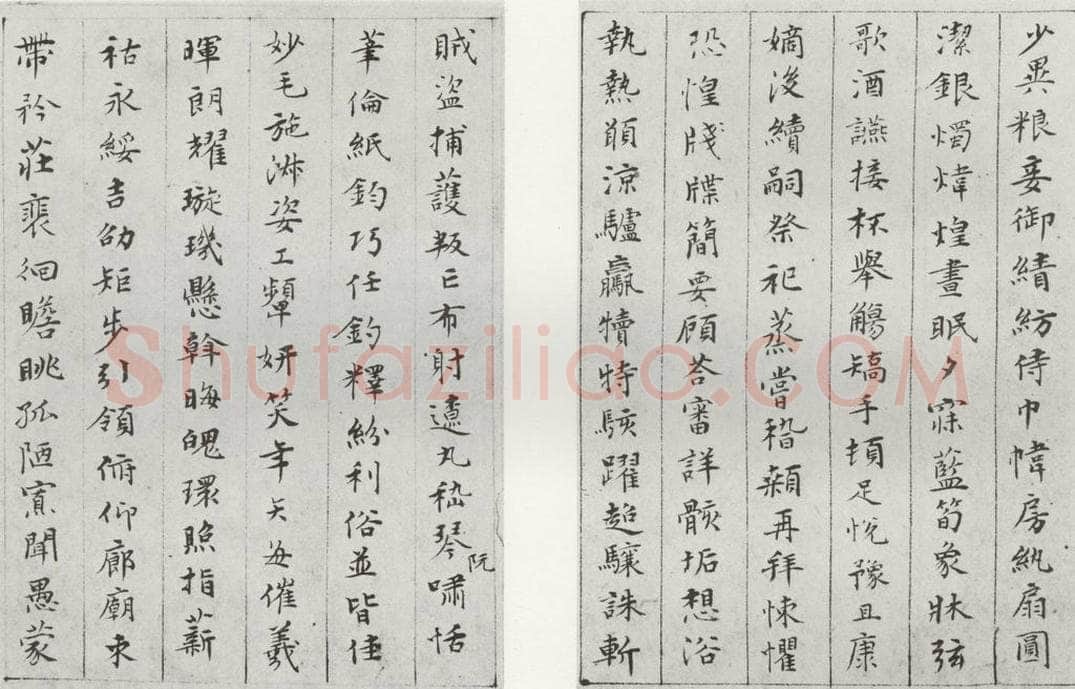 少異粮妾御績紡侍巾帷房紈扇圓
潔銀燭煒煌晝眠夕寐藍筍象牀弦
歌酒讌接杯舉觴矯手頓足悅豫且康
嫡後續嗣祭祀蒸嘗稽顙再拜悚懼
恐惶牋牒簡要顧荅審詳骸垢想浴
執熱願涼驢驘犢特駭躍超驤誅斬
賊盜捕護叛亡布射遼丸嵇琴阮嘯恬
筆倫紙鈞巧任釣釋紛利俗並皆佳
妙毛施淑姿工顰妍笑年矢每催羲
暉朗耀璇璣懸斡晦魄環照指薪
祜永綏吉劭矩步引領俯仰廊廟束
帶矜莊裴徊瞻眺孤陋寡聞愚蒙
Shufaziliao.COM